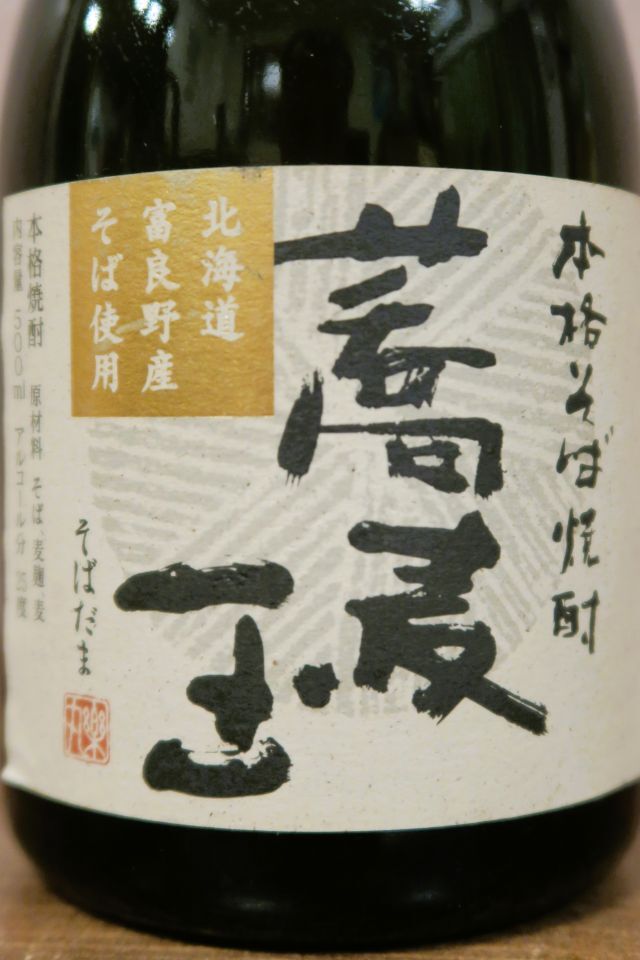 本格そば焼酎
蕎麦
玉
北海道
富良野産
そば使用
そばだま
本格焼酎 原材料 そば、麦麹、麦
内容量 500ml アルコール分 25度